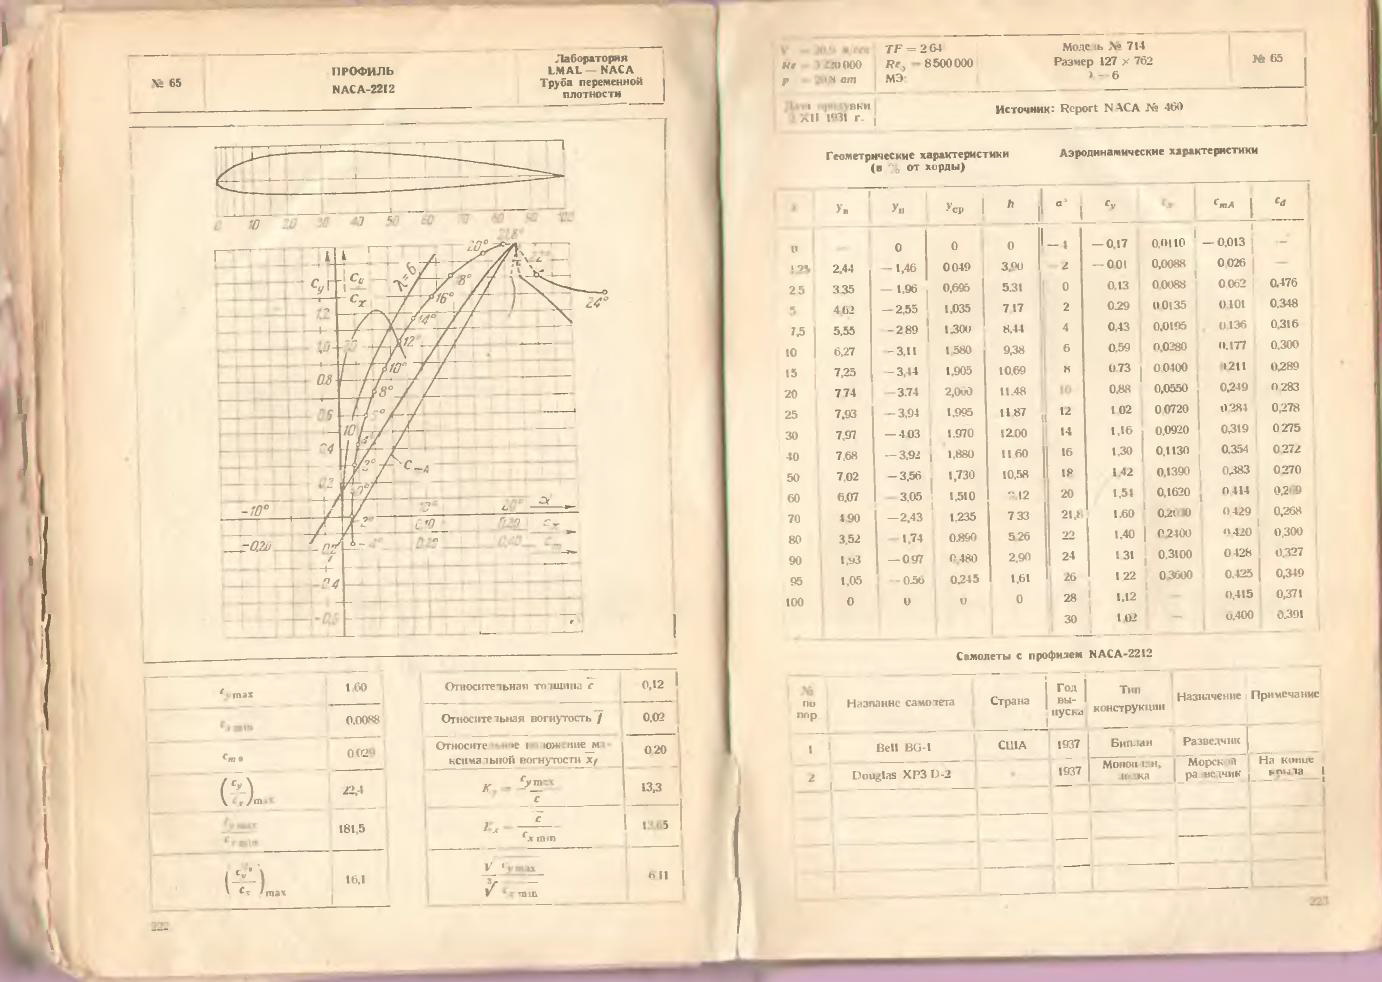 № 65
ПРОФИЛЬ
NACA-2212
Лаборатория
LMAL — NACA
Труба переменной
плотности
0 10 20 30 40 50 60 70 80 90 100
21,8°
20°
22°
18°
16°
14°
12°
10°
8°
24°
λ=6
Cy
Cy
Cx
1,2
1,0
0,8
0,6
0,4
0,2
-10°
-0,20
-0,2
-0,4
-0,6
0,10
cx
cm
c y max
1.60
0,0088
c m 0
0.029
22,4
181,5
16,1
Относительная толщина c
0,12
Относительная вогнутость f
0,02
Относительное положение ма-
ксимальной вогнутости xf
0.20
13,3
6 11
222
TF = 264
Re = 8500000
МЭ:
Модель № 714
Размер 127 × 762
λ — 6
№ 65
XII 1931 г.
Источник: Report NACA № 460
Геометрические характеристики
(в % от хорды)
Аэродинамические характеристики
yв yн yср h α° cy cmA cd
0 0 0 — 4 — 0,17 0,0110 — 0,013 —
1.25 2,44 — 1,46 0 049 3,90 — 2 — 0.01 0,0088 0.026 —
2.5 3.35 — 1,96 0,695 5.31 0 0.13 0.0088 0.062 0,476
5 4.62 — 2,55 1,035 7 17 2 0.29 0.0135 0.101 0,348
7,5 5,55 - 2 89 1,300 8,44 4 0,43 0,0195 0.136 0,316
10 6,27 — 3,11 1.580 9,38 6 0,59 0,0280 0.177 0,300
15 7,25 — 3,44 1,905 10.69 8 0.73 0.0400 0.211 0,289
20 7 74 — 3.74 2,000 11.48 10 0,88 0,0550 0,249 0 283
25 7,93 — 3,94 1,995 11 87 12 1 02 0 0720 0.284 0,278
30 7,97 — 4 03 1.970 12.00 14 1,16 0,0920 0,319 0 275
40 7,68 — 3,92 1,880 11 60 16 1,30 0,1130 0.354 0,272
50 7,02 — 3,56 1,730 10,58 18 1,42 0,1390 0,383 0270
60 6,07 3,05 1,510 20 1,54 0,1620 0 414
70 4.90 — 2,43 1,235 7 33 21,8 1.60 0 429 0,268
80 3,52 — 1,74 0.890 5.26 22 1,40 0,2400 0.420 0,300
90 1,93 — 0 97 0,480 2,90 24 1 31 0,3100 0 428 0,327
95 1,05 — 0.56 0,245 1,61 26 1 22 0,3600 0.425 0,349
100 0 0 0 0 28 1,12 — 0,415 0,371
30 1,02 — 0,400 0,391
Самолеты с профилем NACA-2212
№
по
пор
Название самолета
Страна
Год
вы-
пуска
Тип
конструкции
Назначение
Примечание
1 Bell BG-1 США 1937 Биплан Разведчик
2 Douglas XP3 D-2 » 1937 Моноплан,
лодка
Морской
разведчик
На конце
крыла
223